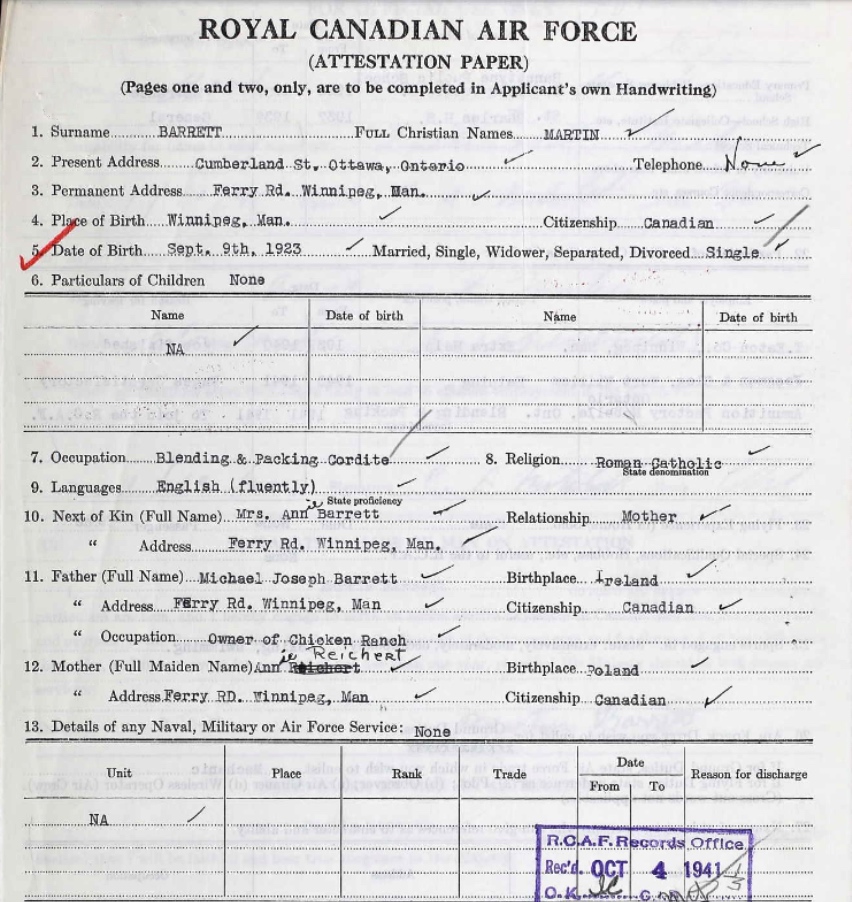 ROYAL CANADIAN AIR FORCE
(ATTESTATION PAPER)
(Pages one and two, only, are to be completed in Applicant's own Handwriting)
1. Surname BARRETT FULL Christian Names MARTIN
2. Present Address Cumberland St. Ottawa, Ontario Telephone None
3. Permanent Address Ferry Rd. Winnipeg, Man.
4. Place of Birth Winnipeg, Man. Citizenship Canadian
5. Date of Birth Sept. 9th, 1923 Married, Single, Widower, Separated, Divorced Single
6. Particulars of Children None
Name Date of birth Name Date of birth
NA
7. Occupation Blending & Packing Cordite 8. Religion Roman Catholic
State denomination
9. Languages English (fluently)
State proficiency
10. Next of Kin (Full Name) Mrs. Annie Barrett Relationship Mother
" Address Ferry Rd. Winnipeg, Man.
11. Father (Full Name) Michael Joseph Barrett Birthplace Ireland
" Address Ferry Rd. Winnipeg, Man Citizenship Canadian
" Occupation Owner of Chicken Ranch
12. Mother (Full Maiden Name) Annie Reichert Birthplace Poland
" Address Ferry RD. Winnipeg, Man Citizenship Canadian
13. Details of any Naval, Military or Air Force Service: None
Unit Place Rank Trade Date Reason for discharge
From To
NA
R.C.A.F. Records Office
Rec'd. OCT 4 1941
O.K.